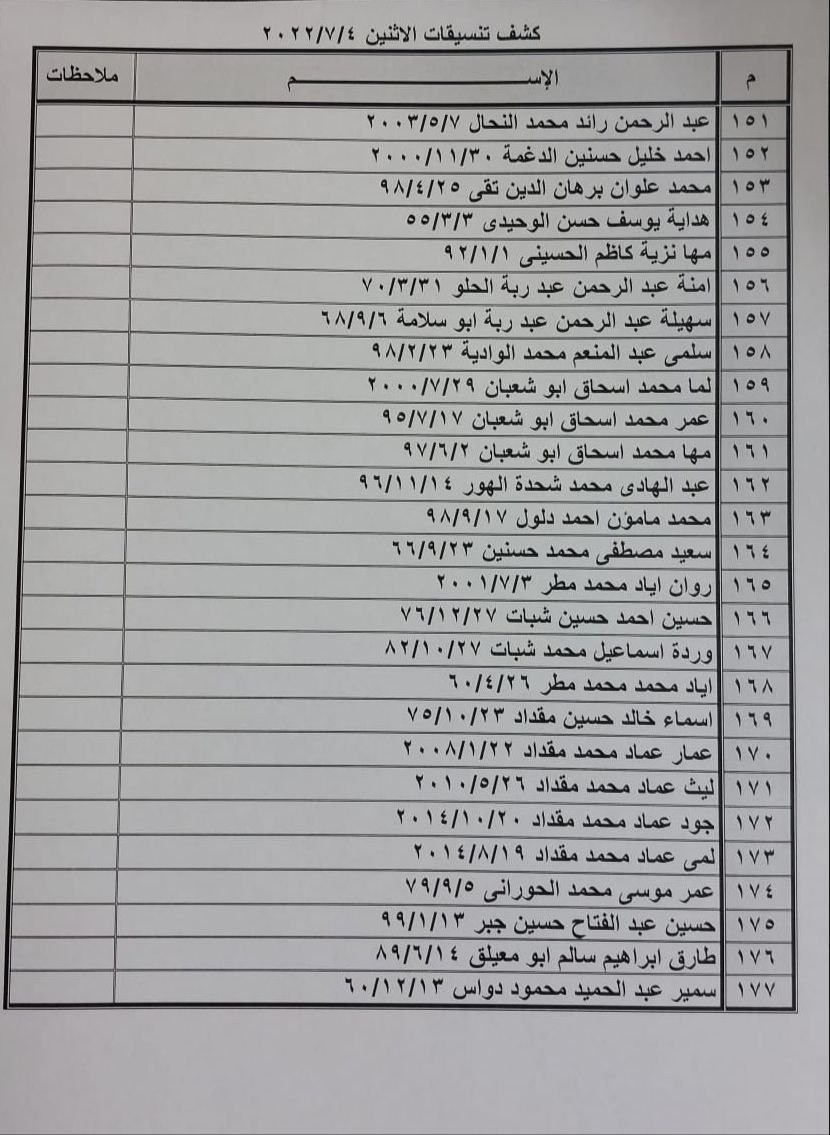 كشف تنسيقات الاثنين ٢٠٢٢/٧/٤
م الإســـــم ملاحظات
١٥١ عبد الرحمن رائد محمد النحال ٢٠٠٣/٥/٧
١٥٢ احمد خليل حسنين الدغمة ٢٠٠٠/١١/٣٠
١٥٣ محمد علوان برهان الدين تقى ٩٨/٤/٢٥
١٥٤ هداية يوسف حسن الوحيدى ٥٥/٣/٣
١٥٥ مها نزية كاظم الحسينى ٩٢/١/١
١٥٦ امنة عبد الرحمن عبد ربة الحلو ٧٠/٣/٣١
١٥٧ سهيلة عبد الرحمن عبد ربة ابو سلامة ٦٨/٩/٦
١٥٨ سلمى عبد المنعم محمد الوادية ٩٨/٢/٢٣
١٥٩ لما محمد اسحاق ابو شعبان ٢٠٠٠/٧/٢٩
١٦٠ عمر محمد اسحاق ابو شعبان ٩٥/٧/١٧
١٦١ مها محمد اسحاق ابو شعبان ٩٧/٦/٢
١٦٢ عبد الهادى محمد شحدة الهور ٩٦/١١/١٤
١٦٣ محمد مامؤن احمد دلول ٩٨/٩/١٧
١٦٤ سعيد مصطفى محمد حسنين ٦٦/٩/٢٣
١٦٥ روان اياد محمد مطر ٢٠٠١/٧/٣
١٦٦ حسين احمد حسين شبات ٧٦/١٢/٢٧
١٦٧ وردة اسماعيل محمد شبات ٨٢/١٠/٢٧
١٦٨ اياد محمد محمد مطر ٦٠/٤/٢٦
١٦٩ اسماء خالد حسين مقداد ٧٥/١٠/٢٣
١٧٠ عمار عماد محمد مقداد ٢٠٠٨/١/٢٢
١٧١ ليث عماد محمد مقداد ٢٠١٠/٥/٢٦
١٧٢ جود عماد محمد مقداد ٢٠١٤/١٠/٢٠
١٧٣ لمى عماد محمد مقداد ٢٠١٤/٨/١٩
١٧٤ عمر موسى محمد الحورانى ٧٩/٩/٥
١٧٥ حسين عبد الفتاح حسين جبر ٩٩/١/١٣
١٧٦ طارق ابراهيم سالم ابو معيلق ٨٩/٦/١٤
١٧٧ سمير عبد الحميد محمود دواس ٦٠/١٢/١٣